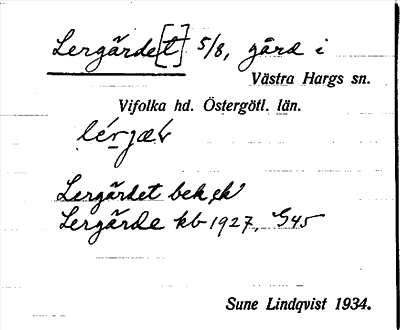 Lergärde[t] 5/8, gård i
Västra Hargs sn.
Vifolka hd. Östergötl. län.
Lergärdet bek, ek
Lergärde kb 1927, G45
Sune Lindqvist 1934.